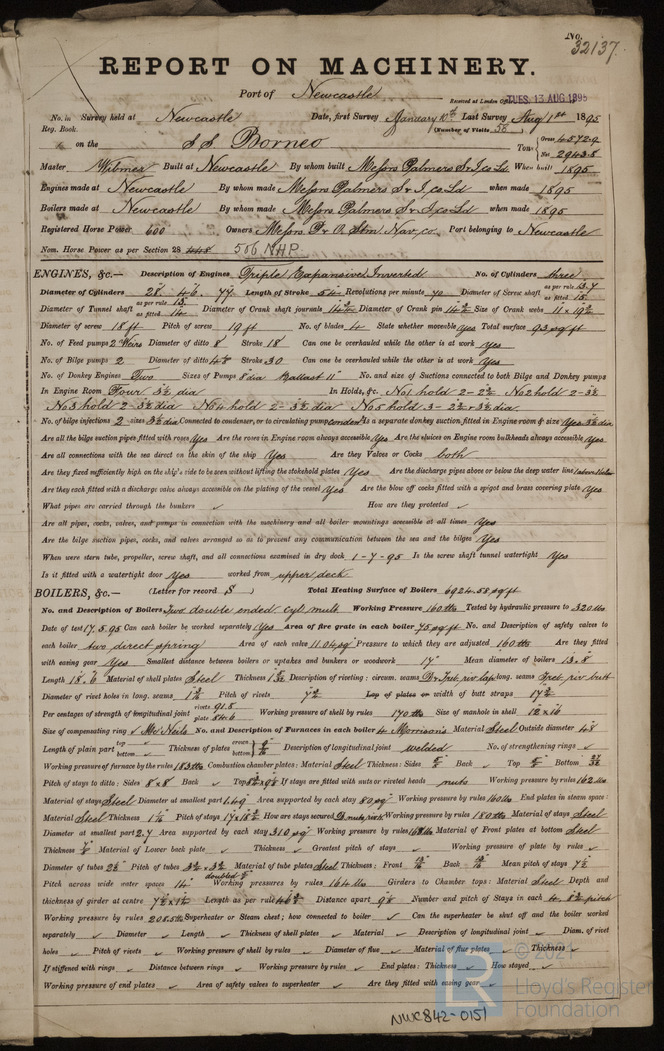 No. 32137.
REPORT ON MACHINERY.
Port of Newcastle
Received at London Office TUES. 13 AUG 1895
No. in Survey held at Newcastle Date, first Survey January 10th Last Survey Aug 1st 1895
Reg. Book. (Number of Visits 58)
on the S.S. Borneo Tons Gross 4572.9 Net 2943.5
Master Built at Newcastle By whom built Messrs Palmers S. & I. Co Ld When built 1895
Engines made at Newcastle By whom made Messrs Palmers S. & I. Co Ld when made 1895
Boilers made at Newcastle By whom made Messrs Palmers S. & I. Co Ld when made 1895
Registered Horse Power 600 Owners Messrs P. & O. Stm. Nav. Co. Port belonging to Newcastle
Nom. Horse Power as per Section 28 448 566 NHP
ENGINES, &c.— Description of Engines Triple Expansive Inverted No. of Cylinders three
Diameter of Cylinders 28 46 77 Length of Stroke 54 Revolutions per minute 70 Diameter of Screw shaft as per rule 13.7 as fitted 15
Diameter of Tunnel shaft as per rule 13 as fitted Diameter of Crank shaft journals Diameter of Crank pin Size of Crank webs
Diameter of screw 18 ft Pitch of screw 19 ft No. of blades 4 State whether moveable Yes Total surface 93 sq ft
No. of Feed pumps 2 Weirs Diameter of ditto 8 Stroke 18 Can one be overhauled while the other is at work Yes
No. of Bilge pumps 2 Diameter of ditto 4¾ Stroke 30 Can one be overhauled while the other is at work Yes
No. of Donkey Engines Two Sizes of Pumps 8" dia Ballast 11" No. and size of Suctions connected to both Bilge and Donkey pumps
In Engine Room Four 3½ dia In Holds, &c. No 1 hold 2 - 2½ No 2 hold 2 - 3½
No 3 hold 2 - 3½ dia No 4 hold 2 - 3½ dia No 5 hold 3 - 2½ & 3½ dia
No. of bilge injections 2 sizes Connected to condenser, or to circulating pump condens Is a separate donkey suction fitted in Engine room & size Yes 3½ dia
Are all the bilge suction pipes fitted with roses Yes Are the roses in Engine room always accessible Yes Are the sluices on Engine room bulkheads always accessible Yes
Are all connections with the sea direct on the skin of the ship Yes Are they Valves or Cocks both
Are they fixed sufficiently high on the ship's side to be seen without lifting the stokehold plates Yes Are the discharge pipes above or below the deep water line
Are they each fitted with a discharge valve always accessible on the plating of the vessel Yes Are the blow off cocks fitted with a spigot and brass covering plate Yes
What pipes are carried through the bunkers ✓ How are they protected ✓
Are all pipes, cocks, valves, and pumps in connection with the machinery and all boiler mountings accessible at all times Yes
Are the bilge suction pipes, cocks, and valves arranged so as to prevent any communication between the sea and the bilges Yes
When were stern tube, propeller, screw shaft, and all connections examined in dry dock 1-7-95 Is the screw shaft tunnel watertight Yes
Is it fitted with a watertight door Yes worked from upper deck
BOILERS, &c.— (Letter for record S) Total Heating Surface of Boilers 6924.58 sq ft
No. and Description of Boilers Two double ended cyl mult Working Pressure 160 lbs Tested by hydraulic pressure to 320 lbs
Date of test 17.5.95 Can each boiler be worked separately Yes Area of fire grate in each boiler 75 sq ft No. and Description of safety valves to
each boiler two direct spring Area of each valve 11.04 sq" Pressure to which they are adjusted 160 lbs Are they fitted
with easing gear Yes Smallest distance between boilers or uptakes and bunkers or woodwork 17" Mean diameter of boilers 13.8
Length 18.6 Material of shell plates Steel Thickness Description of riveting: circum. seams long. seams
Diameter of rivet holes in long. seams Pitch of rivets Lap of plates or width of butt straps 17¾
Per centages of strength of longitudinal joint rivets 91.8 plate 84.6 Working pressure of shell by rules 170 lbs Size of manhole in shell 12 x 16
Size of compensating ring ✓ McNeils No. and Description of Furnaces in each boiler 4 Morrisons Material Steel Outside diameter 48
Length of plain part top bottom Thickness of plates crown bottom Description of longitudinal joint welded No. of strengthening rings ✓
Working pressure of furnace by the rules 183 lbs Combustion chamber plates: Material Steel Thickness: Sides Back ✓ Top Bottom
Pitch of stays to ditto: Sides 8" x 8" Back ✓ Top If stays are fitted with nuts or riveted heads nuts Working pressure by rules 162 lbs
Material of stays Steel Diameter at smallest part Area supported by each stay 80 sq" Working pressure by rules 160 lbs End plates in steam space:
Material Steel Thickness Pitch of stays How are stays secured Working pressure by rules 180 lbs Material of stays Steel
Diameter at smallest part 2.7 Area supported by each stay 310 sq" Working pressure by rules 168 lbs Material of Front plates at bottom Steel
Thickness Material of Lower back plate ✓ Thickness ✓ Greatest pitch of stays ✓ Working pressure of plate by rules ✓
Diameter of tubes 2½" Pitch of tubes Material of tube plates Steel Thickness: Front Back Mean pitch of stays 7½
Pitch across wide water spaces 14" doubled Working pressures by rules 164 lbs Girders to Chamber tops: Material Steel Depth and
thickness of girder at centre Length as per rule Distance apart Number and pitch of Stays in each
Working pressure by rules 208.5 lbs Superheater or Steam chest; how connected to boiler ✓ Can the superheater be shut off and the boiler worked
separately ✓ Diameter ✓ Length ✓ Thickness of shell plates ✓ Material ✓ Description of longitudinal joint ✓ Diam. of rivet
holes ✓ Pitch of rivets ✓ Working pressure of shell by rules ✓ Diameter of flue ✓ Material of flue plates ✓ Thickness ✓
If stiffened with rings ✓ Distance between rings ✓ Working pressure by rules ✓ End plates: Thickness ✓ How stayed ✓
Working pressure of end plates ✓ Area of safety valves to superheater ✓ Are they fitted with easing gear ✓
© 2021
LR
Lloyd's Register
Foundation
NWC842-0151